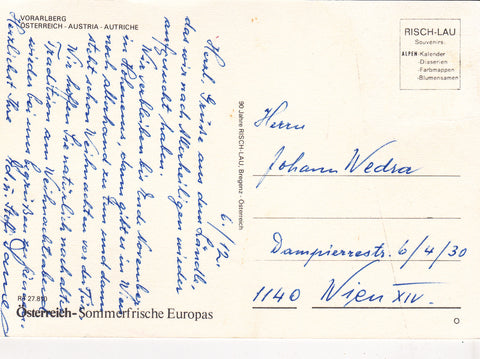 VORARLBERG
ÖSTERREICH - AUSTRIA - AUTRICHE
6./12.
Herzl. Grüsse aus dem Ländle,
das wir nach Allerheiligen wieder
aufgesucht haben.
Wir verbleiben bis Ende November
in Hohenems, dann gibt es in Wien
noch allerhand zu tun und dann
steht schon Weihnachten vor der Tür.
Wir hoffen Sie natürlich nach alter
Tradition am Weihnachtsabend
wieder bei uns begrüßen zu können.
Herzlichst Ihre
RL 27.810
Österreich-Sommerfrische Europas
90 Jahre RISCH-LAU, Bregenz - Österreich
RISCH-LAU
Souvenirs
ALPEN-Kalender
-Diaserien
-Farbmappen
-Blumensamen
Herrn
Johann Wedra
Dampierrestr. 6/4/30
1140 Wien XIV.